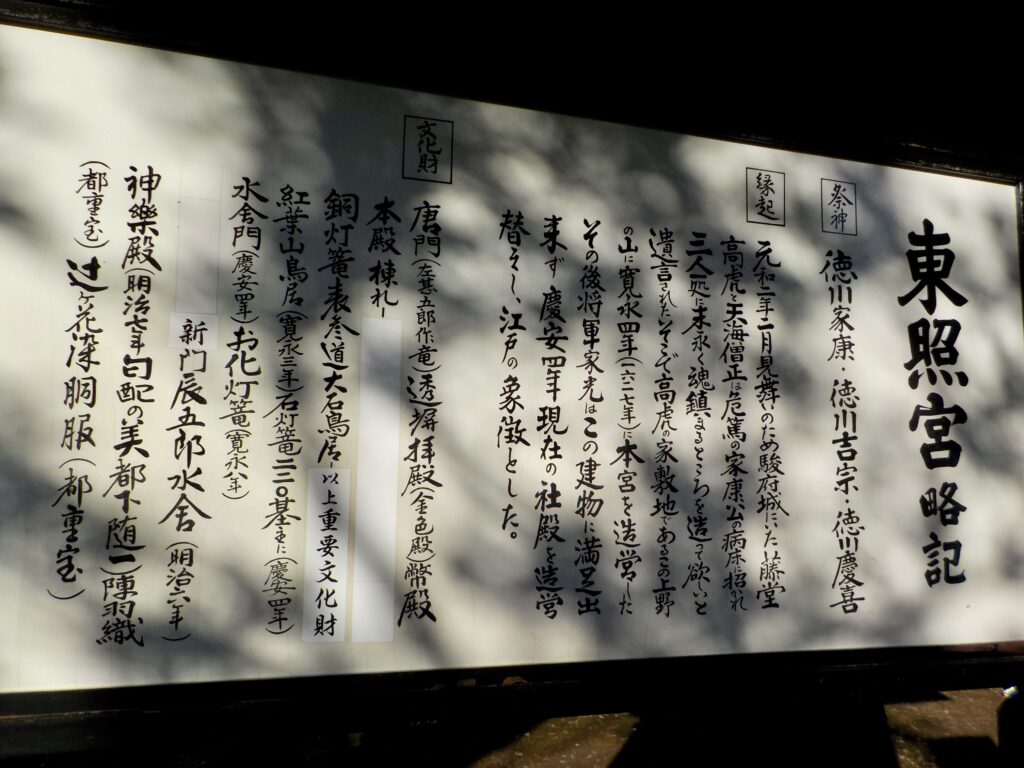 東照宮略記
祭神
徳川家康・徳川吉宗・徳川慶喜
縁起
元和二年二月見舞いのため駿府城にいた藤堂
高虎と天海僧正は危篤の家康公の病床に招かれ
三人一処に末永く魂鎮まるところを造って欲しいと
遺言されたそこで高虎の家敷地であるこの上野
の山に寛永四年(一六二七年)に本宮を造営した
その後将軍家光はこの建物に満足出
来ず慶安四年現在の社殿を造営
替えし、江戸の象徴とした。
文化財
唐門(左甚五郎作竜)透塀拝殿(金色殿)幣殿
本殿棟札一
銅灯篭表参道大石鳥居一以上重要文化財
紅葉山鳥居(寛永三年)石灯篭二二〇基主に(慶安四年)
水舎門(慶安四年)お化灯篭(寛永八年)
新門辰五郎水舎(明治六年)
神樂殿(明治七年勾配の美都下随一)陣羽織
(都重宝)辻ヶ花染胴服(都重宝)